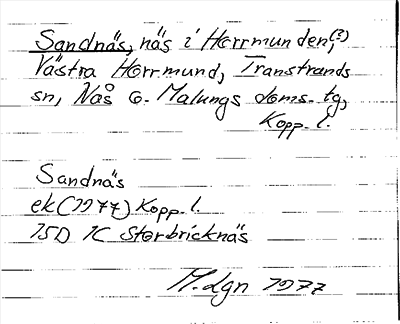 Sandnäs, näs i Horrmunden,(?)
Västra Horrmund, Transtrands
sn, Nås o. Malungs doms. tg,
Kopp. l.
Sandnäs
ek (1977) Kopp. l.
15D 1C Storbricknäs
M. Lgn 1977